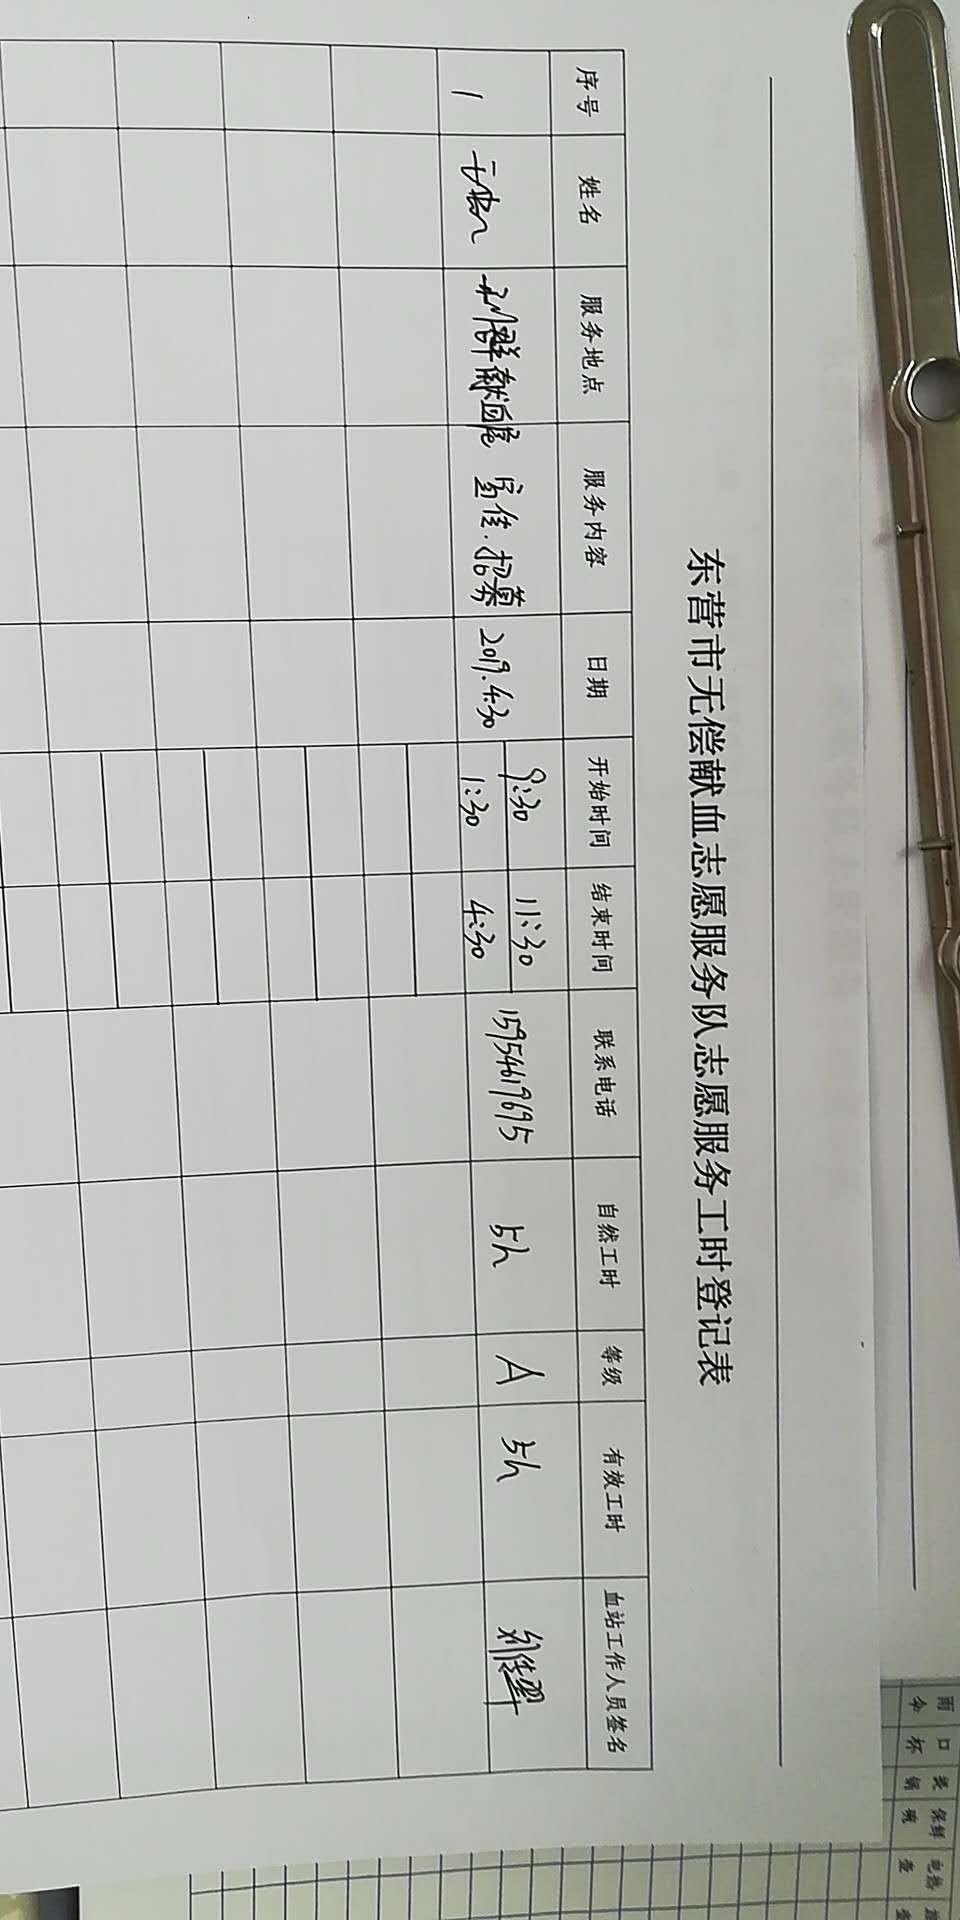 东营市无偿献血志愿服务队志愿服务工时登记表
序号 姓名 服务地点 服务内容 日期 开始时间 结束时间 联系电话 自然工时 等级 有效工时 血站工作人员签名
1 利群献血屋 宣传.招募 2019.4.30 9:30 11:30 15954619695 5h A 5h
1:30 4:30
雨 口 炙 保鲜 电热
伞 杯 锅 碗 壶